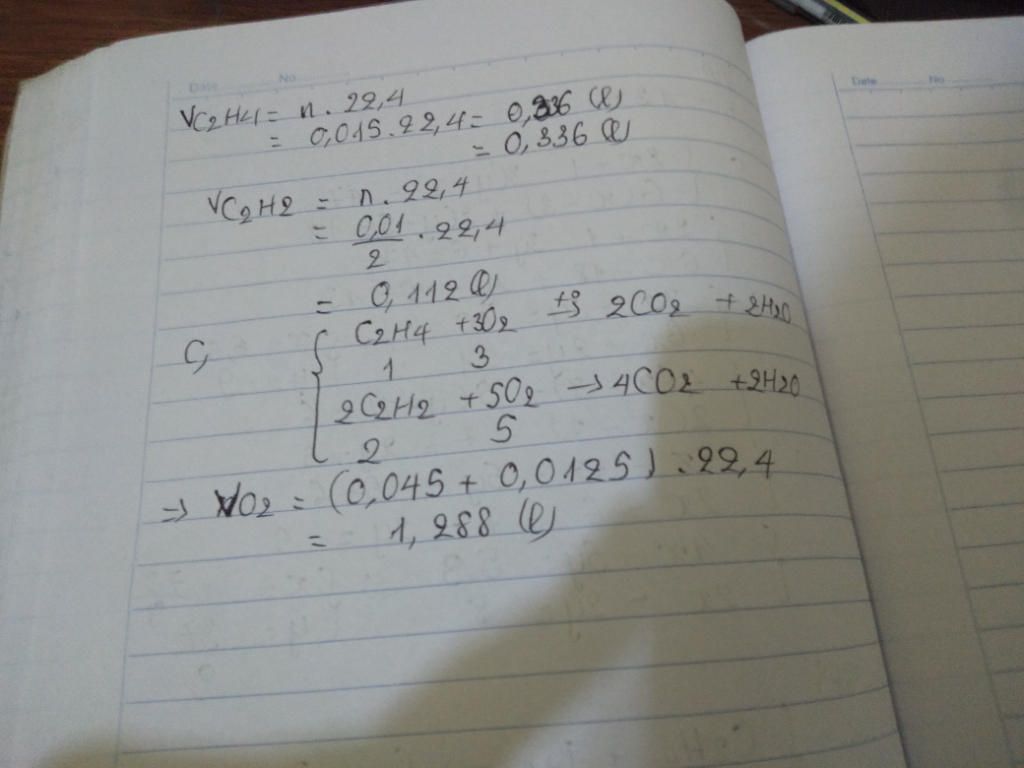 Date No
VC2H4 = n . 22,4
= 0,015 . 22,4 = 0,336 (l)
= 0,336 (l)
VC2H2 = n . 22,4
= 0,01/2 . 22,4
= 0,112 (l)
C, C2H4 + 3O2 → 2CO2 + 2H2O
1 3
2C2H2 + 5O2 → 4CO2 + 2H2O
2 5
=> VO2 = (0,045 + 0,0125) . 22,4
= 1,288 (l)
Date No